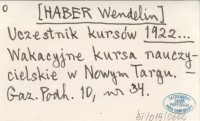 o
[HABER Wendelin]
Uczestnik kursów 1922...
Wakacyjne kursa nauczy-
cielskie w Nowym Targu. –
Gaz. Podh. 10, nr 34.